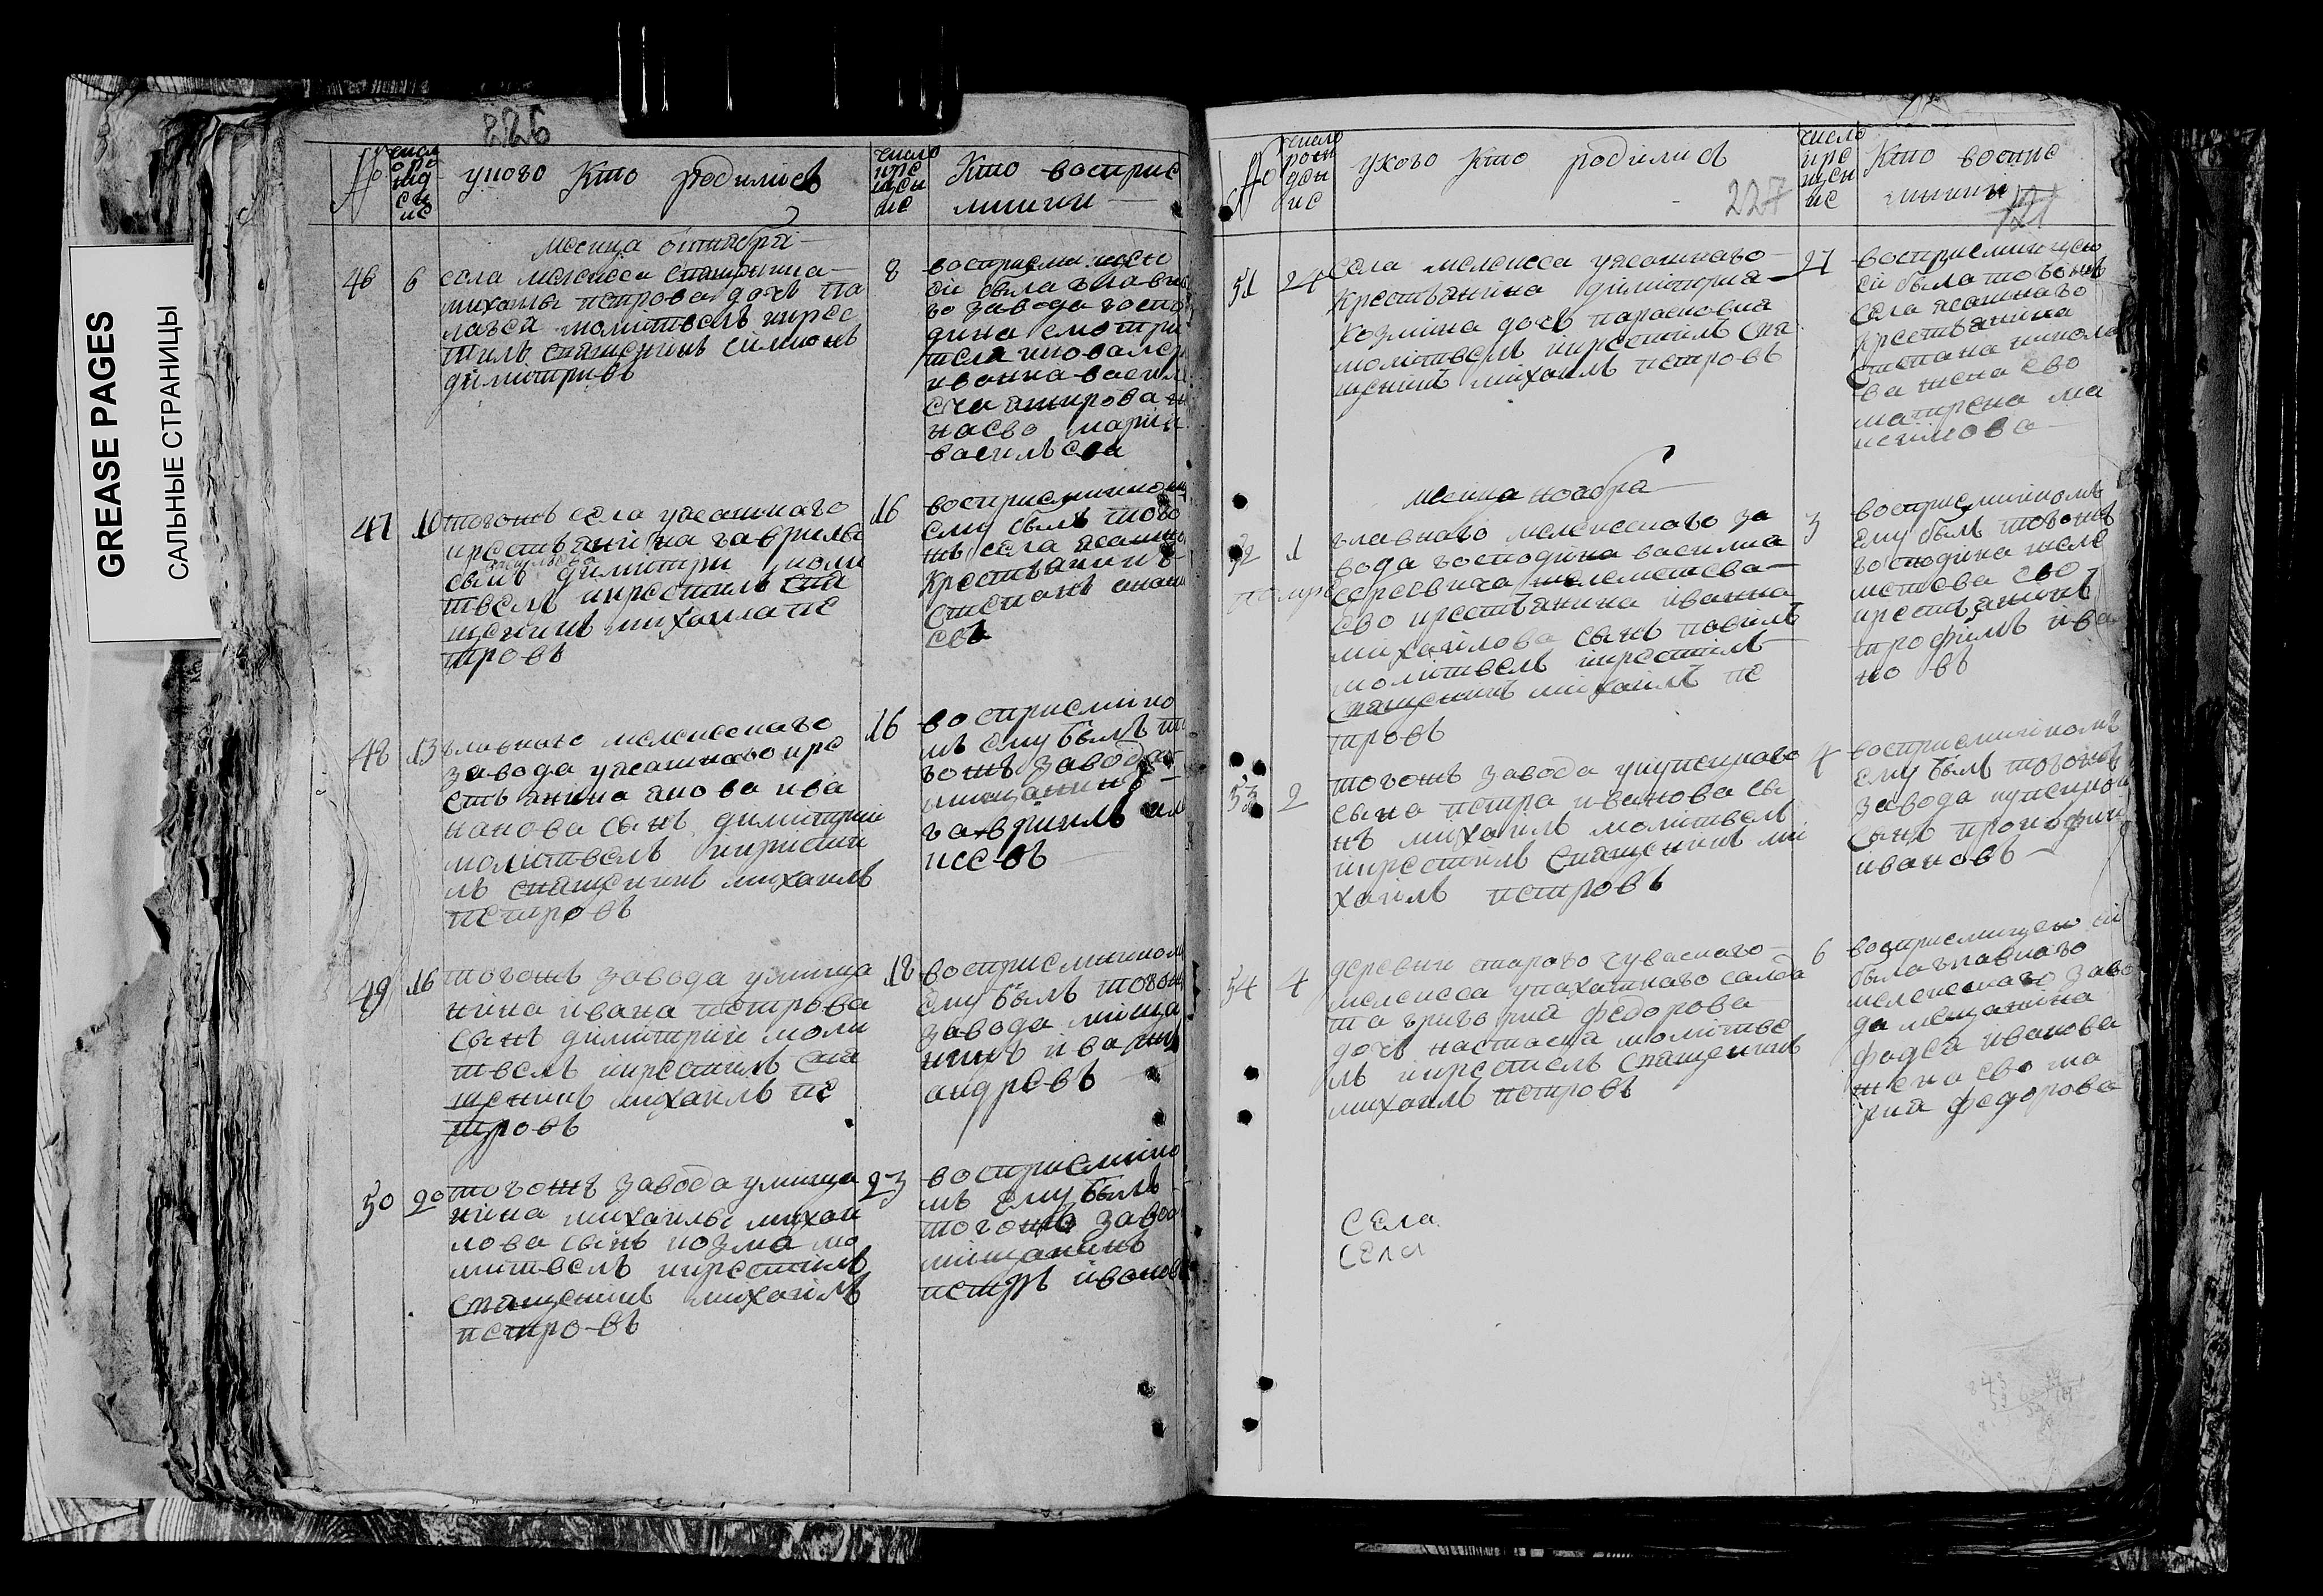 GREASE PAGES
САЛЬНЫЕ СТРАНИЦЫ
226
№
число рождение
у кого кто родились
число крещение
кто восприемники
месяца октября
46
6
села мелекеса
михаилы петрова дочь пе
лагея молитвелъ крес
тилъ священикъ симионъ
димитривъ
8
восприемницею
ей была главна
го завода госпо
дина смотри
теля
иванна васили
ча
на ево мария
василева
47
10
тогожъ села уясашнаго
крестьянина гаврилы
васильева
сынъ димитри моли
твелъ крестилъ свя
щеникъ михаила пе
тровъ
16
восприемником
ему былъ того
жъ села ясашно
крестьянинъ
степанъ
48
13
главнаго мелекескаго
завода уясашнаго кре
стьянина якова ива
нанова сынъ димитрий
молитвелъ кристи
лъ священикъ михаилъ
петровъ
16
восприемнико
мъ ему былъ то
гожъ завода
мищанинъ
гавриилъ ал
иксевъ
49
16
тогожъ завода умища
нина ивана петрова
сынъ димитрий моли
твелъ крестилъ свя
щеникъ михаилъ пе
тровъ
18
восприемником
ему былъ тогож
завода мища
нинъ иванъ
андревъ
50
20
тогожъ завода умища
нина михаилы михаи
лова сынъ козма мо
литвелъ крестилъ
священикъ михаилъ
петровъ
23
восприемнико
мъ ему былъ
тогожъ заво
мищанинъ
петръ ивановъ
№
число рожденис
у кого кто родились
227
число крещение
кто воспие
мники
121
51
24
села мелекеса уясашнаго
крестьянина димитрия
козмина дочь парасковия
молитвелъ крестилъ свя
щеникъ михаилъ петровъ
27
восприемницею
ей была тогожъ
села ясашнаго
крестьянина
степана никола
ва жена ево
матрена ма
ксимова
месяца ноября
52
1
главнаго мелекескаго за
вода господина василиа
сергевича шелеметева
ево крестьянина иванна
михаилова сынъ павилъ
молитвелъ крестилъ
священикъ михаилъ пе
тровъ
3
восприемникомъ
ему былъ тогожъ
господина шеле
метева ево
крестьянинъ
трофимъ ива
но въ
53
2
тогожъ завода укупецкаго
сына петра иванова сы
нъ михаилъ молитвелъ
крестилъ священикъ ми
хаилъ петровъ
4
восприемникомъ
ему былъ тогожъ
завода купецкой
сынъ прокофии
ивановъ
54
4
деревни стараго чувскаго
мелекеса упахатнаго салда
та григорий федорова
дочь настасия молитве
лъ крестилъ священикъ
михаилъ петровъ
6
восприемницею ей
была главнаго
мелекескаго заво
да мещанина
фадея иванова
жена ево ма
рия федорова
села
села